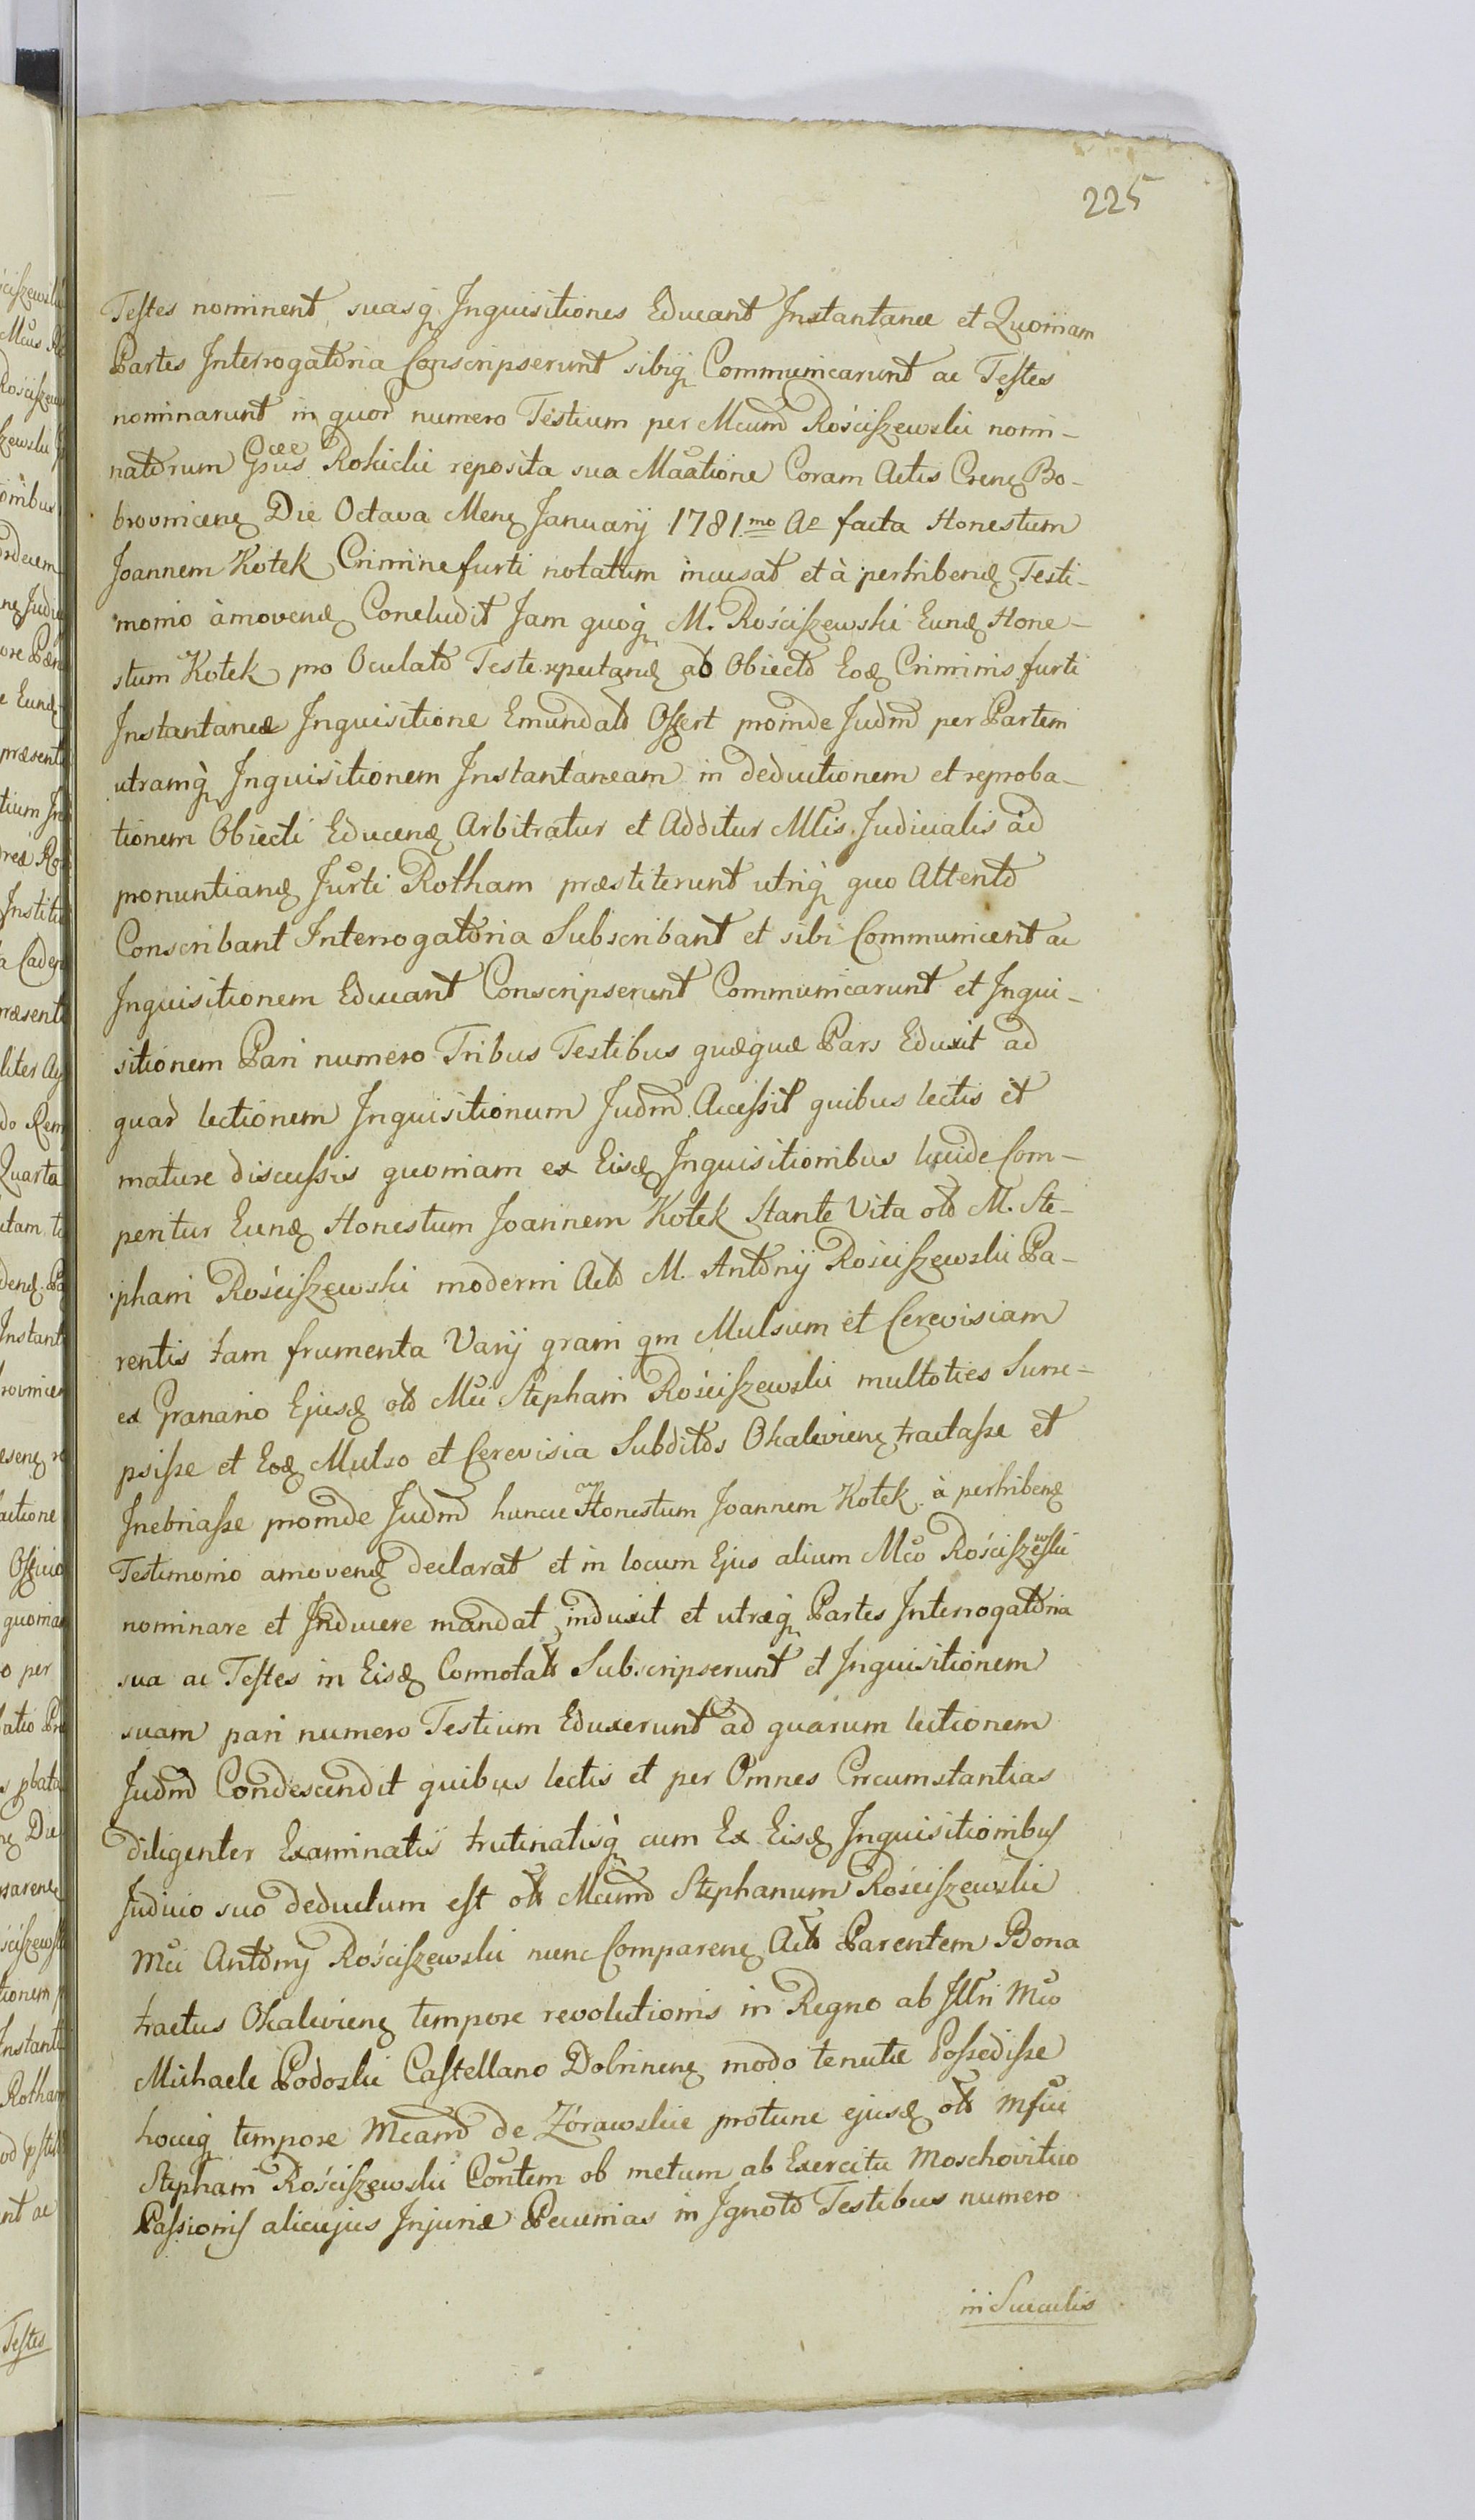 225
Testes nominent, suasq Inquisitiones Educant Instantanee et Quoniam
Partes Interrogatoria Conscripserunt sibiq Communicarunt ac Testes
nominarunt in quor numero Testium per Mcum Rościszewski nomi-
natorum Rokicki reposita sua Coram Actis Bo-
brovnicen Die Octava Mens January 1781mo Ao facta Honestum
Joannem Kotek Crimine furti notatum incusat et à perhibend Testi-
monio àmovend Concludit Jam quoq M. Rościszewski Eund Hone-
stum Kotek pro Oculato Teste ab Obiecto Eod Criminis furti
Instantanea Inquisitione Emundato Offert proinde Judm per Partem
utramq Inquisitionem Instantaneam in deductionem et reproba-
tionem Obiecti Educend Arbitratur et Additur Judicialis ad
pronuntiand Rotham præstiterunt utriq quo Attento
Conscribant Interrogatoria Subscribant et sibi Communicent ac
Inquisitionem Educant Conscripserunt Communicarunt et Inqui-
sitionem Pari numero Tribus Testibus quæque Pars Eduxit ad
quar lectionem Inquisitionum Judm Accessit quibus lectis et
mature discussis quoniam ex Eisd Inquisitionibus lucide Com-
peritur Eund Honestum Joannem Kotek Stante Vita olo M. Ste-
phani Rościszewski moderni Acto M. Antonij Rościszewski Pa-
rentis tam frumenta Varij grani qm Mulsum et Cerevisiam
ex Granario Ejusd olo Mci Stephani Rościszewski multoties Surre-
psisse et Eod Mulso et Cerevisia Subditos Okalevien tractasse et
Inebriasse proinde Judm huncce Honestum Joannem Kotek à perhibend
Testimonio amovend declarat et in locum Ejus alium Mco Rościszewski
nominare et Inducere mandat induxit et utræq Partes Interrogatoria
sua ac Testes in Eisd Connotato Subscripserunt et Inquisitionem
suam pari numero Testium Eduxerunt ad quarum lectionem
Judm Condescendit quibus lectis et per Omnes Circumstantias
diligenter Examinatis trutinatisq cum Ex Eisd Inquisitionibus
Judicio suo deductum est olo Mcum Stephanum Rościszewski
Mci Antony Rościszewski nunc Comparen Acto Parentem Bona
tractus Okalevien tempore revolutionis in Regno ab Illri Mco
Michaele Podoski Castellano Dobrinen modo tenutæ Possedisse
hocceq tempore Mcam de Zórawskie protunc ejusd olo
Stephani Rościszewski Contem ob metum ab Exercitu Moschovitico
Passionis alicujus Injuriæ Pecunias in Ignoto Testibus numero
in Sacculis